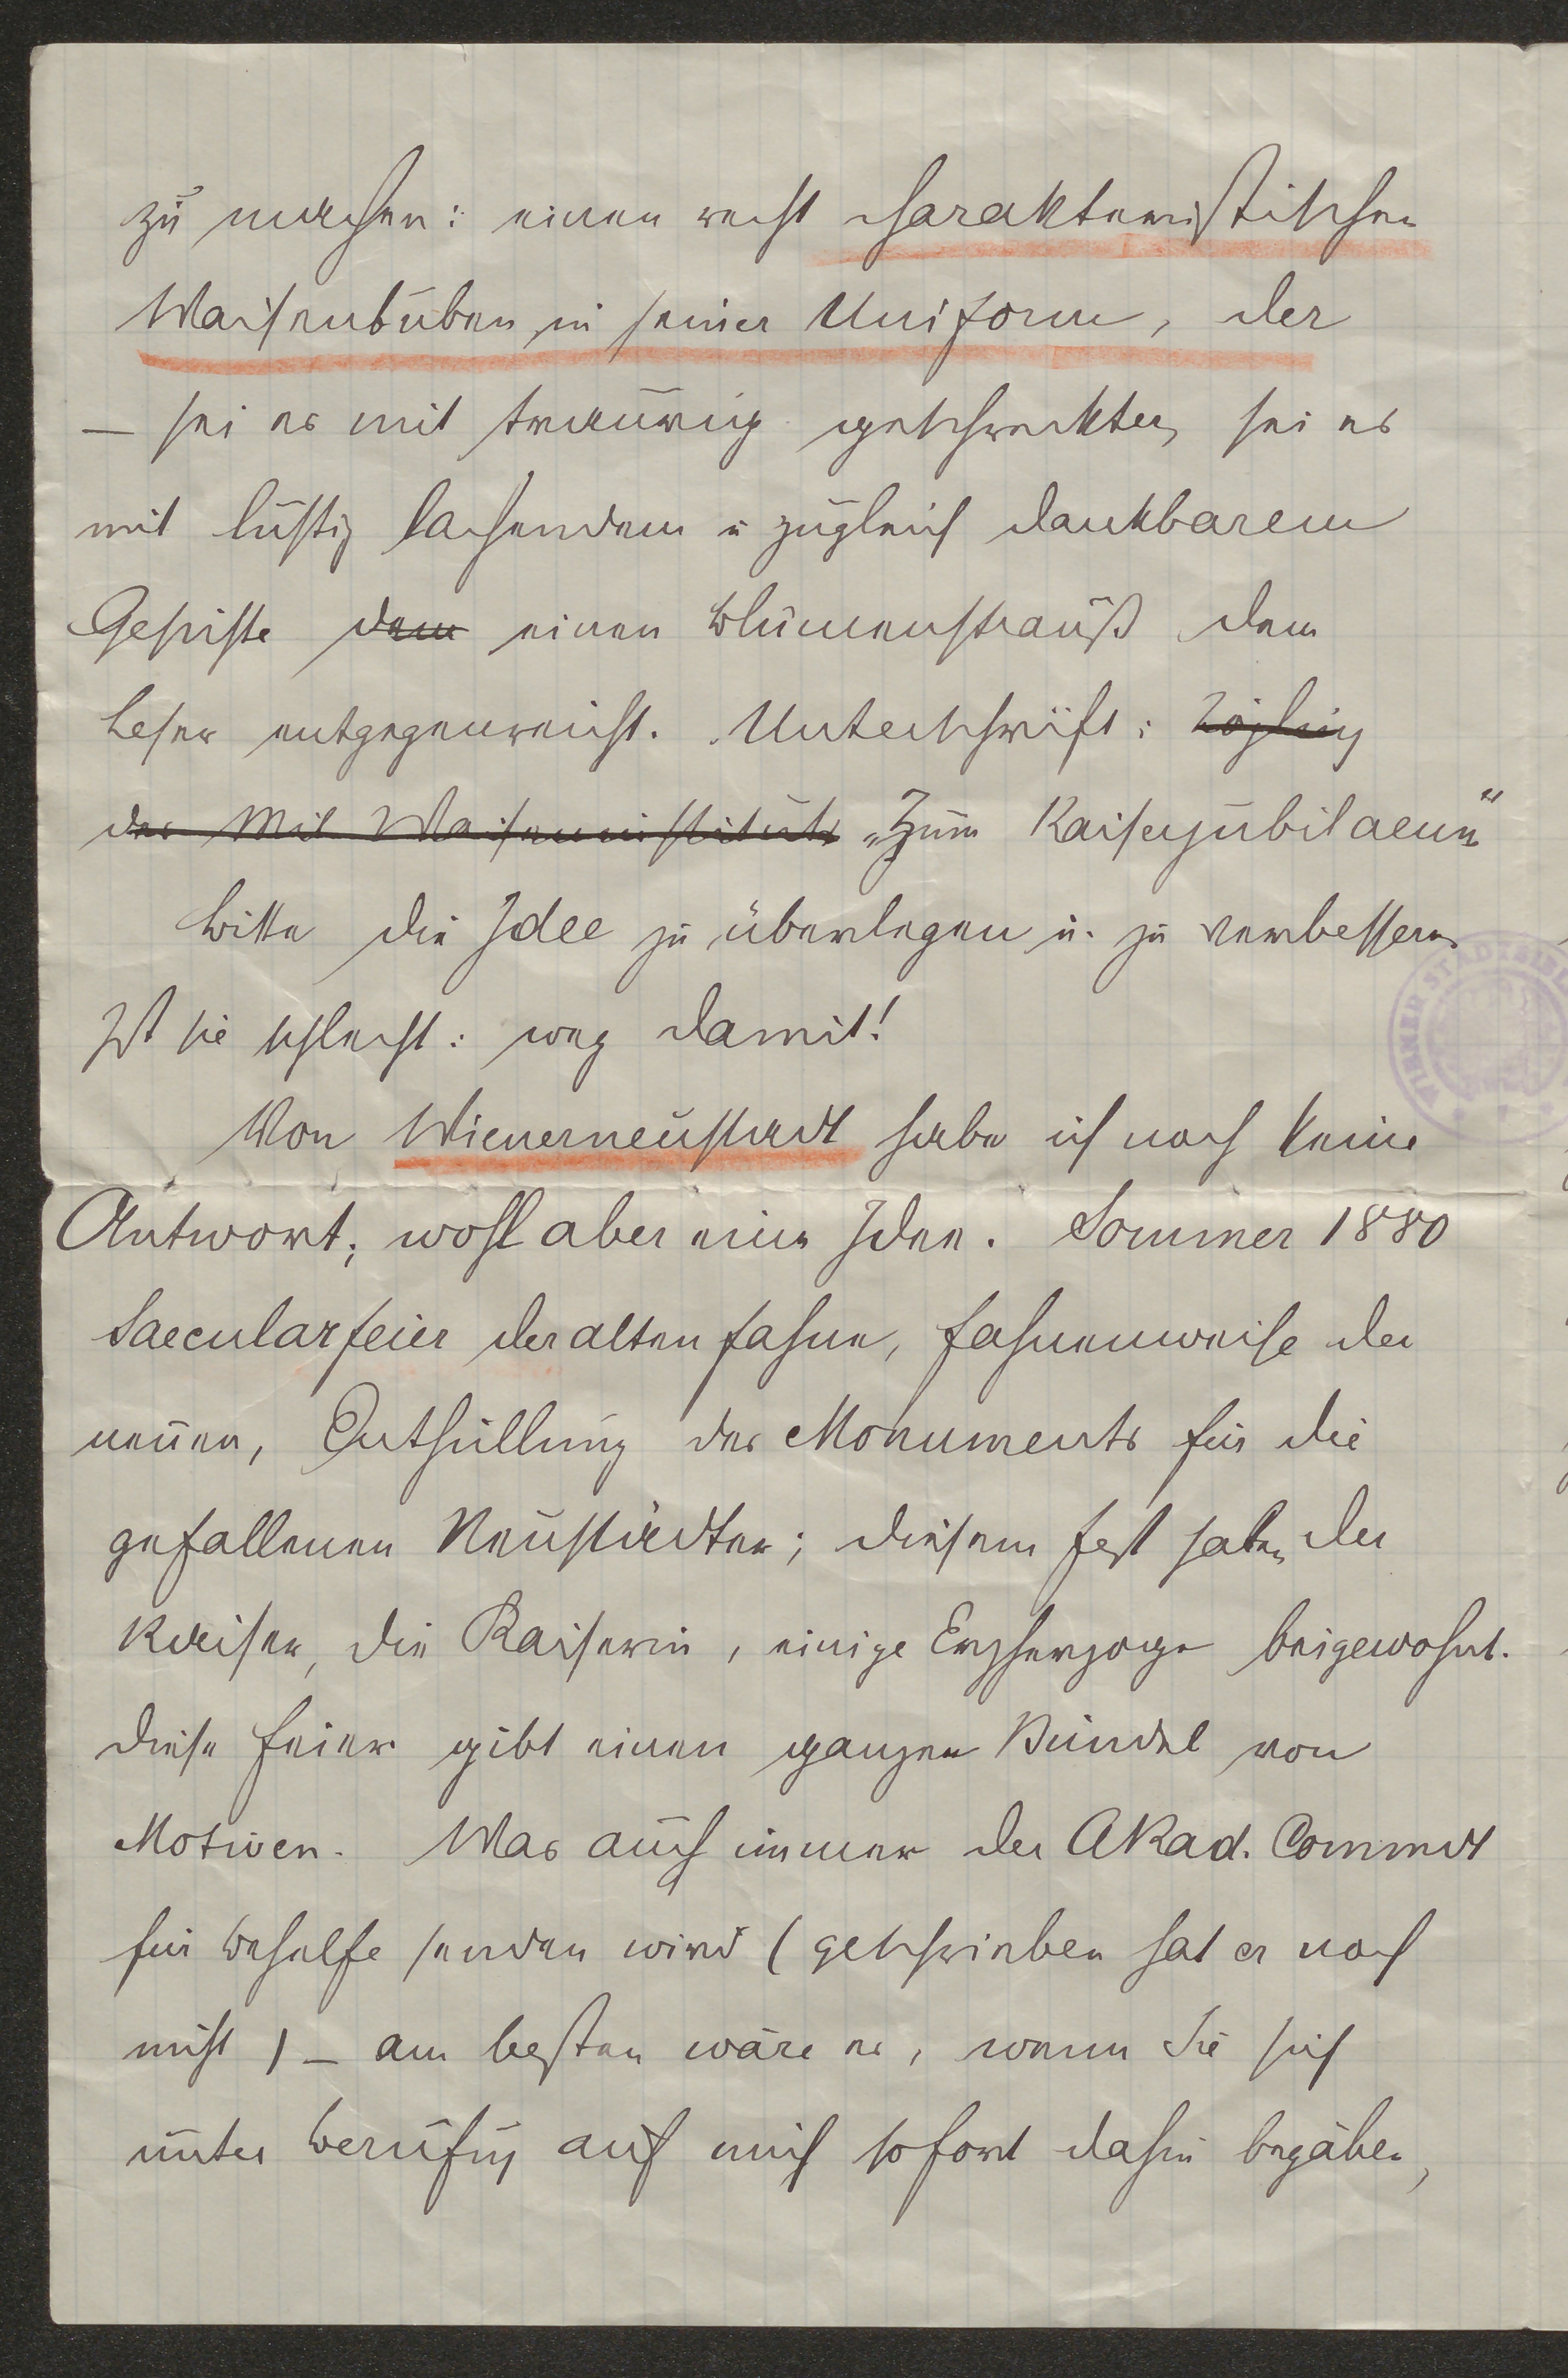 zu machen: einen recht charakteristischen
Waisenbuben in seiner Uniform, der
– sei es mit traurig geschreckten, sei es
mit lustig lachendem u zugleich dankbarem
Gesichte dem einen Blumenstrauß dem
Leser entgegenreicht. Unterschrift: Zögling
des Mil Waiseninstituts „Zum Kaiserjubilaeum“
Bitte die Idee zu überlegen u. zu verbessern.
Ist sie schlecht: weg damit!
Von Wienerneustadt habe ich noch keine
Antwort; wohl aber eine Idee. Sommer 1880
Saecularfeier der alten Fahne, Fahnenweihe der
neuen, Enthüllung des Monuments für die
gefallenen Neustädter; diesem Fest haben der
Kaiser, die Kaiserin, einige Erzherzoge beigewohnt.
Diese Feier gibt einen ganzen Bündel von
Motiven. Was auch immer der Akad. Commdt
für Behelfe senden wird (geschrieben hat er noch
nicht) – am besten wäre es, wenn Sie sich
unter Berufung auf mich sofort dahin begäben,
WIENER STADTBIBL